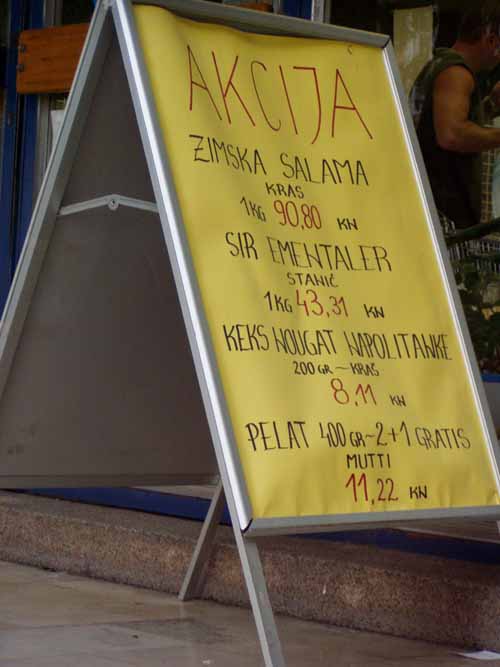 AKCIJA
ZIMSKA SALAMA
KRAS
1KG 90,80 KN
SIR EMENTALER
STANIĆ
1KG 43,31 KN
KEKS NOUGAT NAPOLITANKE
200 GR ~ KRAŠ
8,11 KN
PELAT 400 GR ~ 2+1 GRATIS
MUTTI
11,22 KN